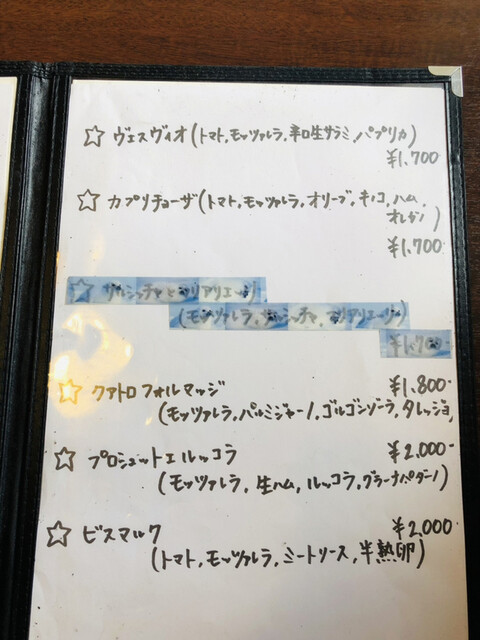 ☆ ヴェスヴィオ(トマト,モッツァレラ,辛口生サラミ,パプリカ)
¥1,700
☆ カプリチョーザ(トマト,モッツァレラ,オリーブ,キノコ,ハム,
オレガノ)
¥1,700
☆ サルシッチャと
(モッツァレラ,サルシッチャ,
☆ クァトロフォルマッジ ¥1,800-
(モッツァレラ,パルミジャーノ,ゴルゴンゾーラ,タレッジョ,
☆ プロシュットエルッコラ ¥2,000-
(モッツァレラ,生ハム,ルッコラ,グラーナパダーノ)
☆ ビスマルク ¥2,000
(トマト,モッツァレラ,ミートソース,半熟卵)